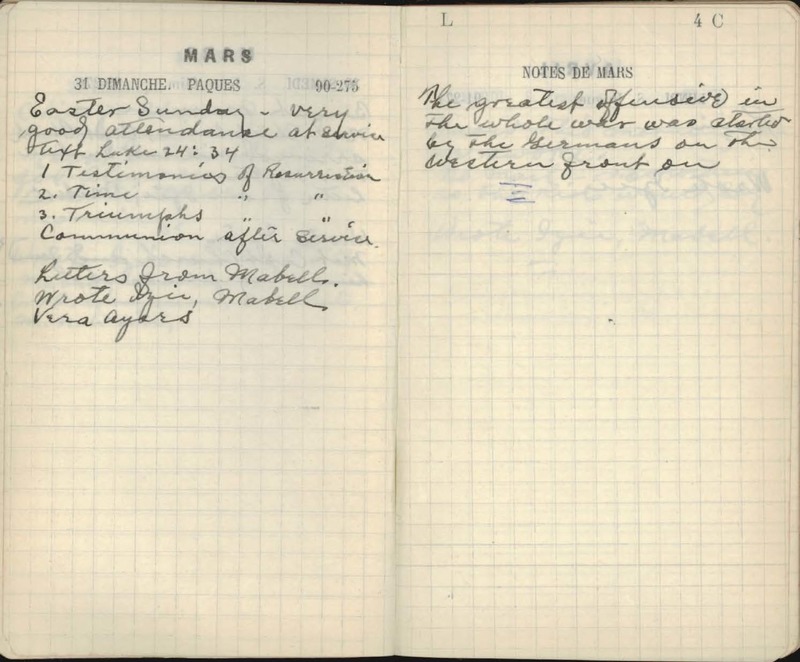 MARS
31 DIMANCHE. PAQUES 90-275
Easter Sunday - very
good attendance at service
text Luke 24:34
1 Testimonies of Resurrection
2. Time " "
3. Triumphs " "
Communion after service.
Letters from Mabell.
Wrote Izie, Mabell
Vera Ayars
L 4 C
NOTES DE MARS
The greatest offensive in
the whole war was started
by the Germans on the
western front on